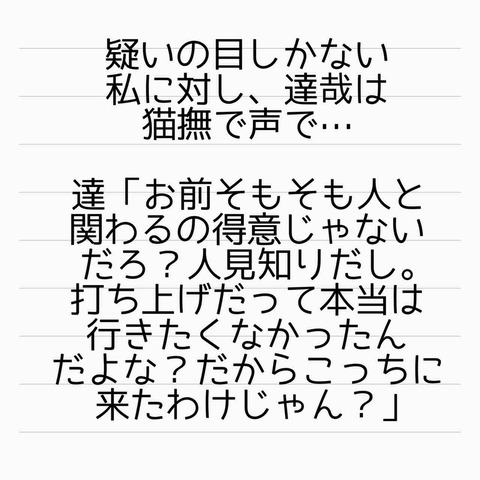 疑いの目しかない
私に対し、達哉は
猫撫で声で…
達「お前そもそも人と
関わるの得意じゃない
だろ？人見知りだし。
打ち上げだって本当は
行きたくなかったん
だよな？だからこっちに
来たわけじゃん？」